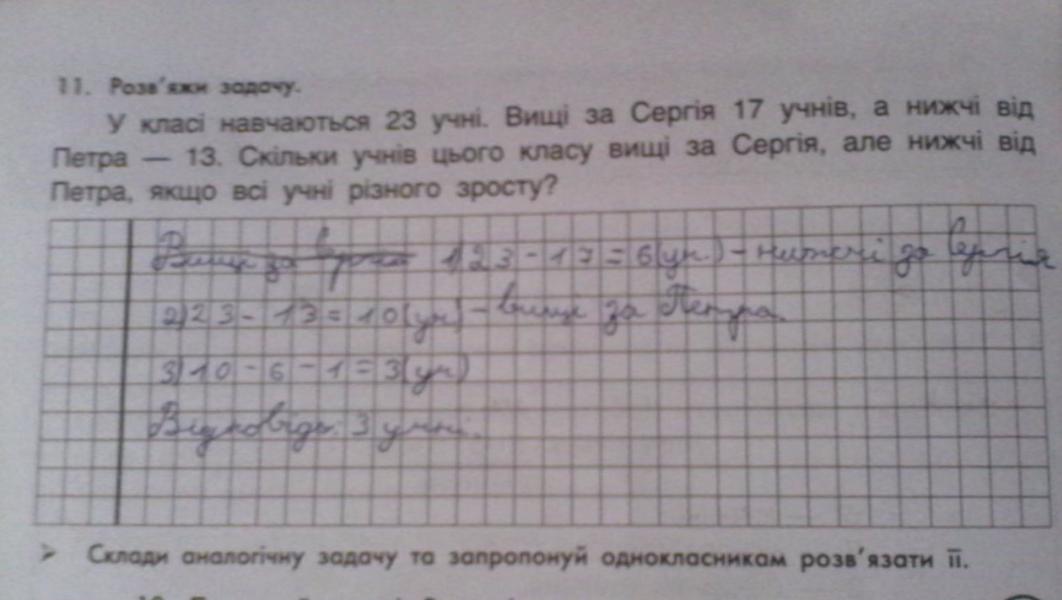 11. Розв'яжи задачу.
У класі навчаються 23 учні. Вищі за Сергія 17 учнів, а нижчі від
Петра — 13. Скільки учнів цього класу вищі за Сергія, але нижчі від
Петра, якщо всі учні різного зросту?
1) 23 - 17 = 6 (ун.) - нижчі за Сергія
2) 23 - 13 = 10 (ун) - вище за Петра.
3) 10 - 6 - 1 = 3 (ун)
Відповідь: 3 учні.
➤ Склади аналогічну задачу та запропонуй однокласникам розв'язати її.